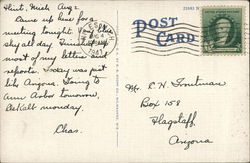 Flint, Mich. Aug 2
Came up here for a
meeting tonight. blue
sky all day. Finished up
most of my letters and
reports. Today was just
like Arizona. Going to
Ann Arbor tomorrow,
DeKalb monday.
Chas.
POST
CARD
Mr. E. N. Troutman
Box 158
Flagstaff,
Arizona